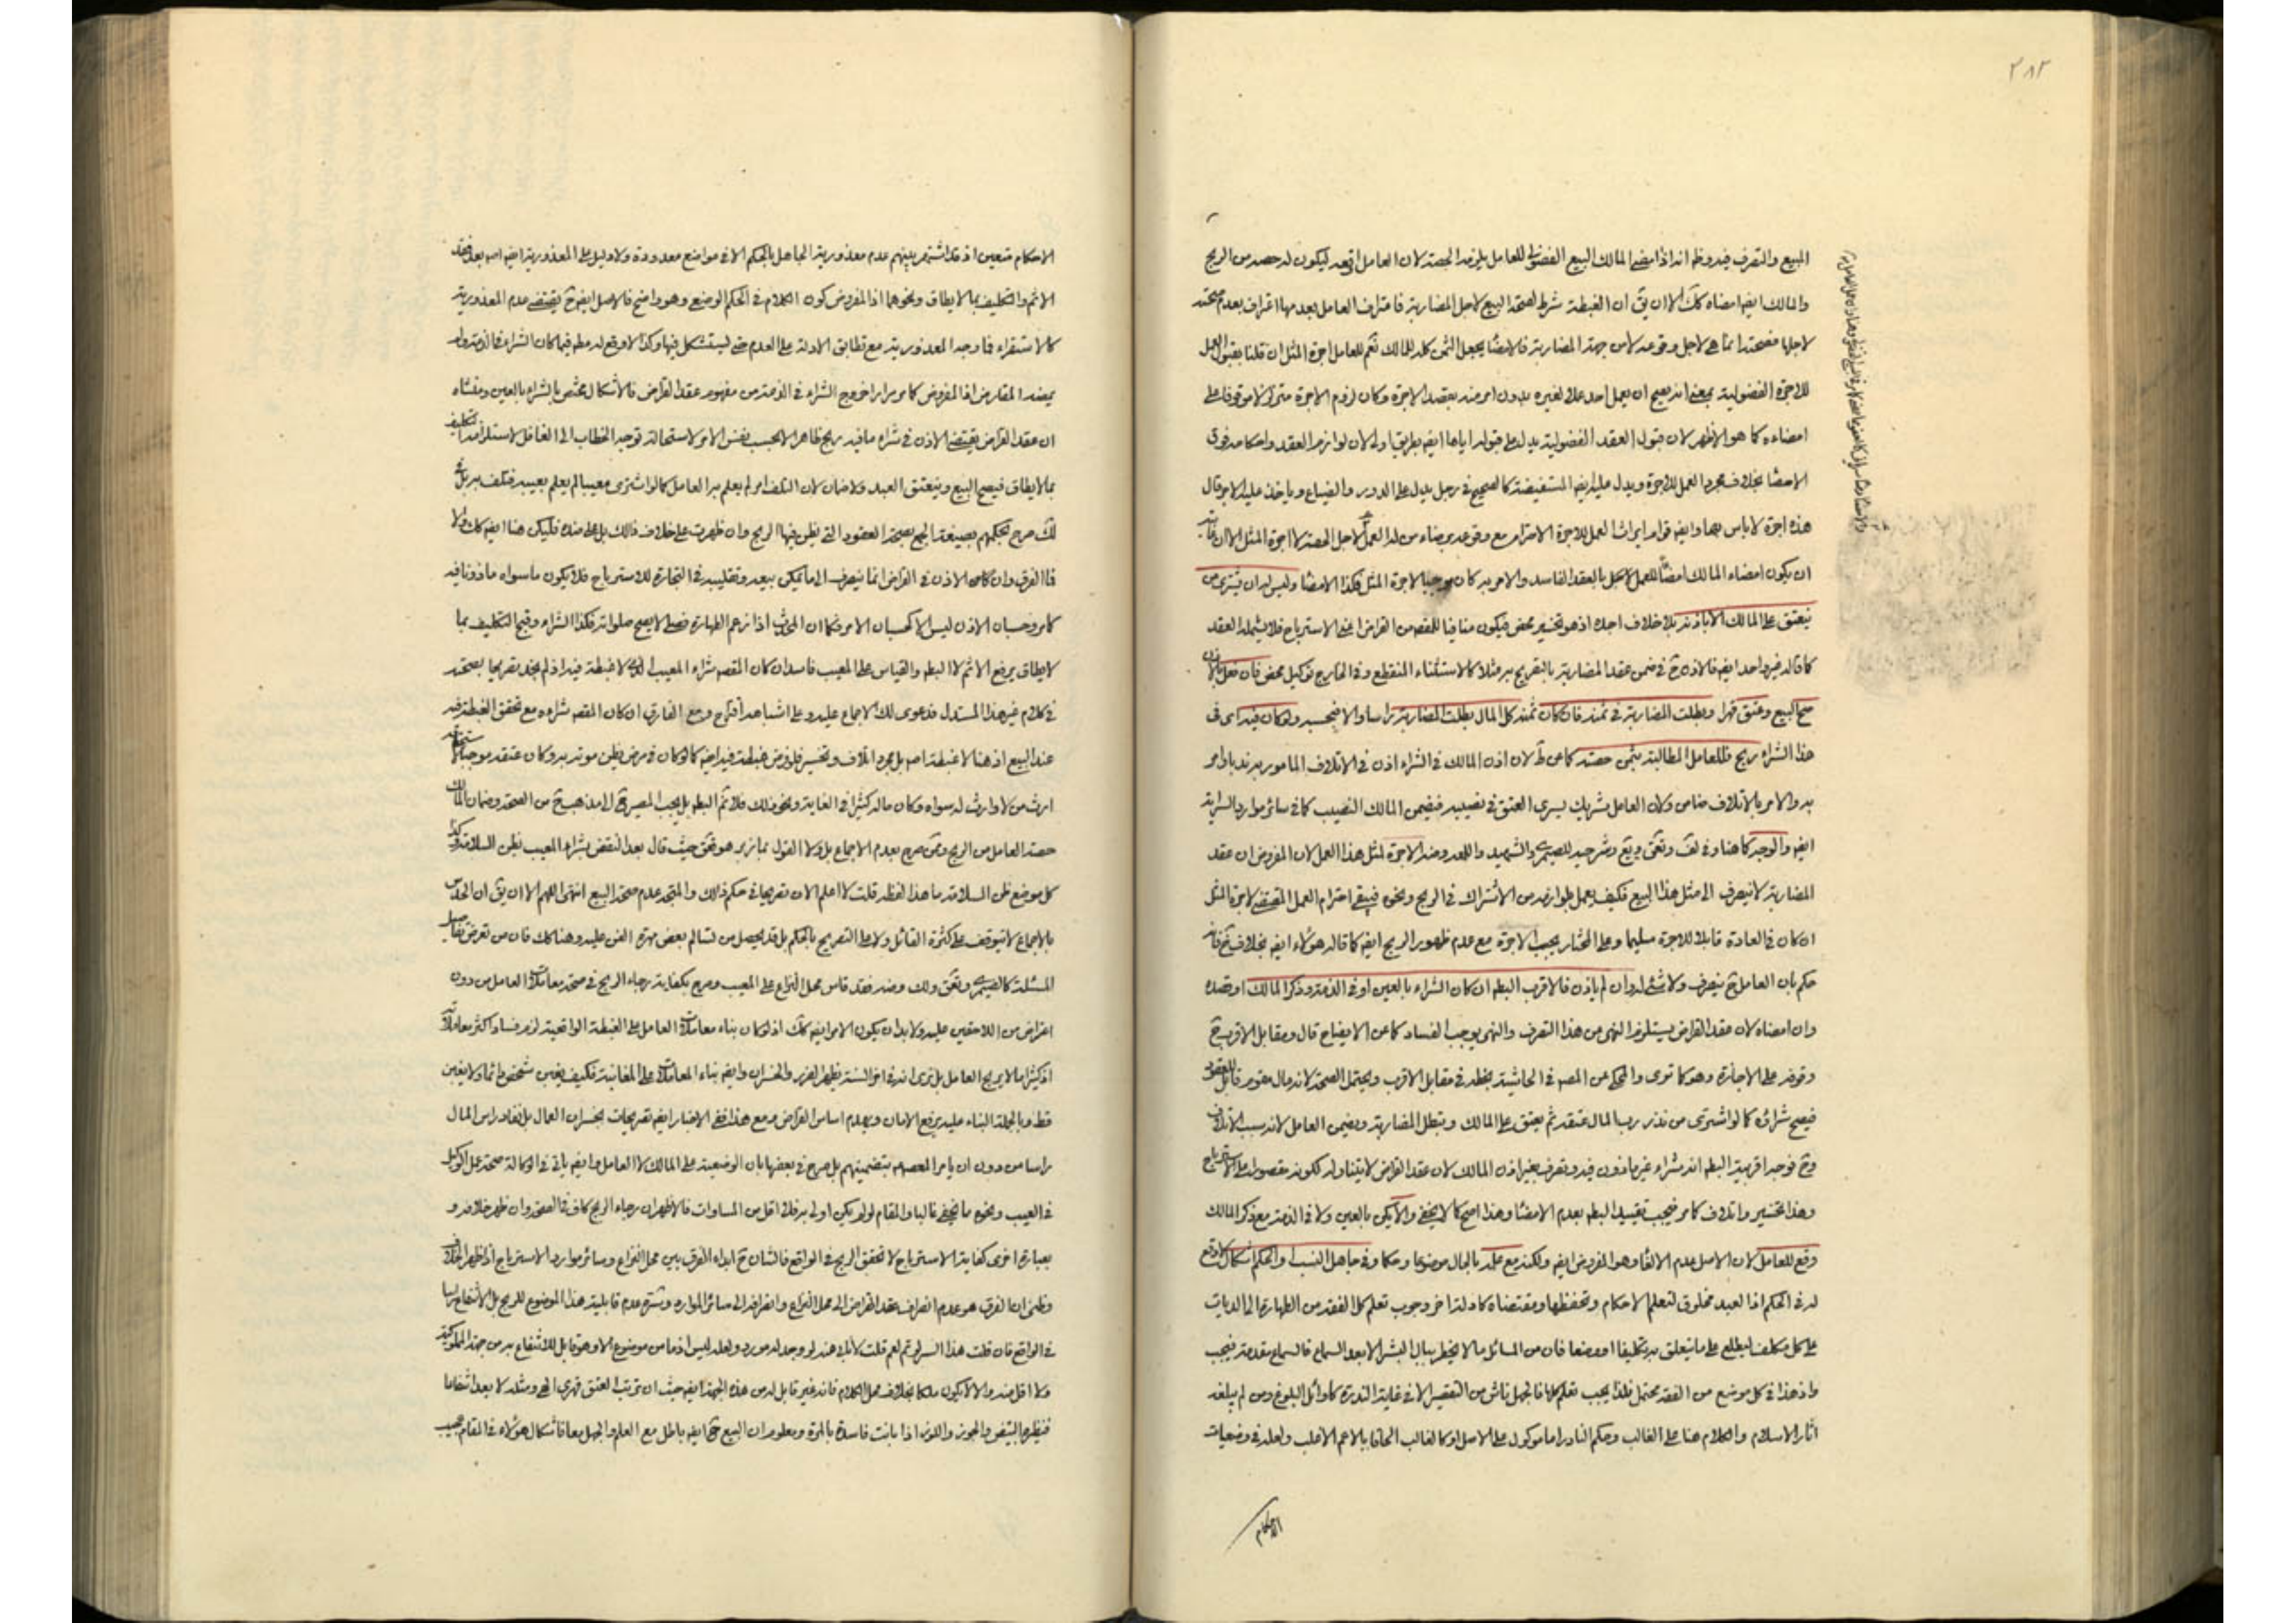 ٢٨٢
المبيع والتصرف فيه وظ انه اذا امضى المالك البيع الفضولى للعامل يلزمه الحصة لان العامل اوقعه ليكون له حصة من الربح
والمالك ايضا امضاه كك الا ان يق ان الغبطة شرط لصحة البيع لاجل المضاربة فاعتراف العامل بعدمها اعتراف بعدم صحته
لاجلها فصحته انما هى لاجل وقوعه لا من جهة المضاربة فالامضا يجعل الثمن كله للمالك نعم للعامل اجرة المثل ان قلنا بقبول العمل
للاجرة الفضولية بمعنى انه يصح ان يعمل احد عملا لغيره بدون امر منه بقصد الاجرة وكان لزوم الاجرة موقوفا على
امضاءه كما هو الاظهر لان قبول العقد الفضولية يدل على قبوله اياها ايضا بطريق اولى لان لوازم العقد واحكامه فوق
الامضا بخلاف مجرد العمل للاجرة ويدل عليه ايضا المستفيضة كالصحيح فى رجل يدل على الدور والضياع وياخذ عليه الاجر قال
هذه اجرة لا باس بها وايضا قوام ايراث العمل للاجرة الاحترام مع وقوعه برضاء من له العمل لاجل الحصة لا اجرة المثل الا ان
ان يكون امضاء المالك امضا للعمل بالعقد الفاسد والامر به كان موجبا لاجرة المثل فكذا الامضا وليس له ان يشترى من
ينعتق على المالك الا باذنه بلا خلاف اجده اذ هو تخسير محض فيكون منافيا للقصد من القراض اعنى الاسترباح فلا يشمله العقد
كما قاله غير واحد ايضا فالاذن ح فى ضمن عقد المضاربة بالتصريح به مثلا كالاستثناء المنقطع وفى الخارج توكيل محض فان فعل بالاذن
صح البيع وعتق قهرا وبطلت المضاربة فى ثمنه فان كان ثمنه كل المال بطلت المضاربة راسا والا فبحسبه ولو كان فيه اى فى
هذا الشراء ربح فللعامل المطالبة بثمن حصته كما عن ط لان اذن المالك فى الشراء اذن فى الاتلاف المامور به ند باوامر
به والامر بالاتلاف ضامن ولان العامل شريك يسرى العتق فى نصيبه فيضمن المالك النصيب كما فى سائر موارد السراية
ايضا والوجه كما هنا وفى لف وشرحيه للصيمرى والشهيد واللمعة وضه الاجرة لمثل هذا العمل لان المفروض ان عقد
المضاربة لا ينصرف الى مثل هذا البيع فكيف يعمل بلوازمه من الاشتراك فى الربح ونحوه فيبقى احترام العمل المقتضى لاجرة المثل
ان كان فى العادة قابلا للاجرة سليما وعلى المختار يجب الاجرة مع عدم ظهور الربح ايضا كما قاله هؤلاء ايضا بخلاف
حكم بان العامل ح ينصرف ولا شئ له وان لم ياذن فالاقرب البطلان ان كان الشراء بالعين او فى الذمة وذكر المالك او قصده
وان امضاه لان عقد القراض يستلزم النهى من هذا التصرف والنهى يوجب الفساد كما عن الايضاح قال ومقابل الاقرب ح
وقوفه على الاجازة وهو كما ترى والمحكى عن المصـ فى الحاشية بخطه فى مقابل الاقرب ويحتمل الصحة لانه مال متقوم قابل للعقود
فيصح شراؤه كما لو اشترى من نذر رب المال عتقه ثم يعتق على المالك وتبطل المضاربة ويضمن العامل لانه سبب الاتلاف
وح فوجه اقربية البطلان انه شراء غير ماذون فيه وتصرف بغير اذن المالك لان عقد القراض لا يتناوله لكونه مقصورا على الاسترباح
وهذا تخسير واتلاف كما مر فيجب تقييد البطلان بعدم الامضا وهذا اصح كما لا يخفى والا يكن بالعين ولا فى الذمة مع ذكر المالك
وقع للعامل لان الاصل عدم الالغا وهو المفروض ايضا ولكنه مع علمه بالحال موضوعا وحكما وفى جاهل النسب او الحكم اشكال لا وقع
له فى الحكم اذا العبد مخلوق لتعلم الاحكام وتحفظها ومقتضاه كادلة اخر وجوب تعلم كل الفقه من الطهارة الى الديات
على كل مكلف ليطلع على ما يتعلق به تكليفا او وضعا فان من المسائل ما لا يخطر ببال البشر الا بعد السماع فالسماع مقدمة فيجب
واذ هذا فى كل موضع من الفقه محتمل فلذا يجب تعلم كلها فالجهل ناش من التقصير الا فى غاية الندرة كاوائل البلوغ ومن لم يبلغه
اثار الاسلام والكلام هنا على الغالب وحكم النادر اما موكول على الاصل او كالغالب الحاقا بالاعم الاغلب ولعله فى وضعيات
الاحكام
الاحكام متعين اذ قد اشتهر بينهم عدم معذورية الجاهل بالحكم الا فى مواضع معدودة ولا دليل على المعذورية ايضا اصـ بعد فقد
الاثم والتكليف بما لا يطاق ونحوهما اذ المفروض كون الكلام فى الحكم الوضعى وهو واضح فالاصل ايضا ح يقتضى عدم المعذورية
كالاستقراء فما وجه المعذورية مع تطابق الادلة على العدم حتى يستشكل فيها وكذا لا وقع له مطـ فيما كان الشراء فى الذمة ولم
يقصد المقارض اذ المفروض كما مر مرارا خروج الشراء فى الذمة من مفهوم عقد القراض فالاشكال مختص بالشراء بالعين ومنشاه
ان عقد القراض يقتضى الاذن فى شراء ما فيه ربح ظاهرا لا بحسب نفس الامر لاستحالة توجه الخطاب الى الغافل لاستلزامه التكليف
بما لا يطاق فيصح البيع وينعتق العبد ولا ضمان لان التلف امر لم يعلم به العامل كما لو اشترى معيبا لم يعلم بعيبه فتلف به بل
لك صرح تحكمهم بصيغة الجمع بصحة العقود التى يظن فيها الربح وان ظهرت على خلاف ذالك بل على ضده فليكن هنا ايضا كك ولا
فا الفرق وان كان الاذن فى القراض انما ينصرف الى ما يمكن بيعه وتقليبه فى التجارة للاسترباح فلا يكون ما سواه ماذونا فيه
كما مر وحسبان الاذن ليس الا كحسبان الامر فكما ان المحدث اذا زعم الطهارة فصلى لا يصح صلواته فكذا الشراء وقبح التكليف بما
لا يطاق يرفع الاثم لا البطلان والقياس على المعيب فاسد ان كان المقصـ شراء المعيب الذى لا غبطة فيه اذ لم يجد تصريحا بصحته
فى كلام غير هذا المستدل فدعوى لك الاجماع عليه وعلى اشباهه اقترح ومع الفارق ان كان المقصـ شراءه مع تحقق الغبطة فيه
عند البيع اذ هنا لا غبطة اصـ بل مجرد اتلاف وتخسير فلو فرض غبطة فيه ايضا كما لو كان فى مرض يظن موته به وكان عتقه موجبا لاستحقاقه
ارث من لا وارث له سواه وكان ماله كثيرا فى الغاية ونحو ذلك فلا ثم البطلان بل يجب المصير ح الى مذهب ح من الصحة وضمان المالك
حصة العامل من الربح وممن صرح بعدم الاجماع بل ولا القول بما زعمه هو حيث قال بعد النقض بشراء المعيب بظن السلامة وكذا
كل موضع ظن السلامة ما هذا لفظه قلت لا اعلم الان تصريحا فى حكم ذلك والمتجه عدم صحة البيع انتهى اللهم الا ان يق ان الحدس
بالاجماع لا يتوقف على كثرة القائل ولا على التصريح بالحكم بل قد يحصل من تسالم بعض مهرة الفن عليه وهنا كك فان من تعرض تفاصيل
المسئلة كالصيمرى ولك وضه فقد قاس محل النزاع على المعيب وصرح بكفاية رجاء الربح فى صحة معاملات العامل من دون
اعراض من اللاحقين عليه ولا بد ان يكون الامر ايضا كك اذ لو كان بناء معاملات العامل على الغبطة الواقعية لزم فساد اكثر معاملاته
اذ كثيرا ما لا يربح العامل بل ترى انه فى اخر السنة يظهر الضرر والخسران وايضا بناء المعاملات على المغابنة فكيف يغبن شخص دائما ولا يغبن
قط وبالجملة البناء عليه يرفع الامان ويهدم اساس القراض ومع هذا ففى الاخبار ايضا تصريحات بخسران العمال بل نفاد راس المال
راسا من دون ان يامر المعصوم بتضمينهم بل صرح فى بعضها بان الوضيعة على المالك لا العامل وايضا ياتى فى الوكالة صحة عمل الوكيل
فى العيب ونحوه ما يخفى غالبا والمقام لو لم يكن اولى به فلا اقل من المساوات فالاظهر ان رجاء الربح كاف فى الصحة وان ظهر خلافه و
بعبارة اخرى كفاية الاسترباح لا تحقق الربح فى الواقع فالشان ح ابداء الفرق بين محل النزاع وسائر موارد الاسترباح اذا ظهر الخلاف
وظنى ان الفرق هو عدم انصراف عقد القراض الى محل النزاع وانصرافه الى سائر الموارد وسره عدم قابلية هذا الموضوع للربح بل الانتفاع راسا
فى الواقع فان قلت هذا السر لو تم لعم قلت لا لو وجد له مورد ولعله ليس اذ ما من موضوع الا وهو قابل للانتفاع به من جهة الملوكية
ولا اقل منه والا لا يكون ملكا بخلاف محل الكلام فانه غير قابل له من هذه الجهة ايضا حيث ان ترتب العتق قهرى ومثله لا يعد انتفاعا
فنظيره البيض والجوز واللوز اذا بانت فاسدة بالمرة ومعلوم ان البيع ح ايضا باطل مع العلم والجهل معا فاشكال هؤلاء فى المقام عجيب